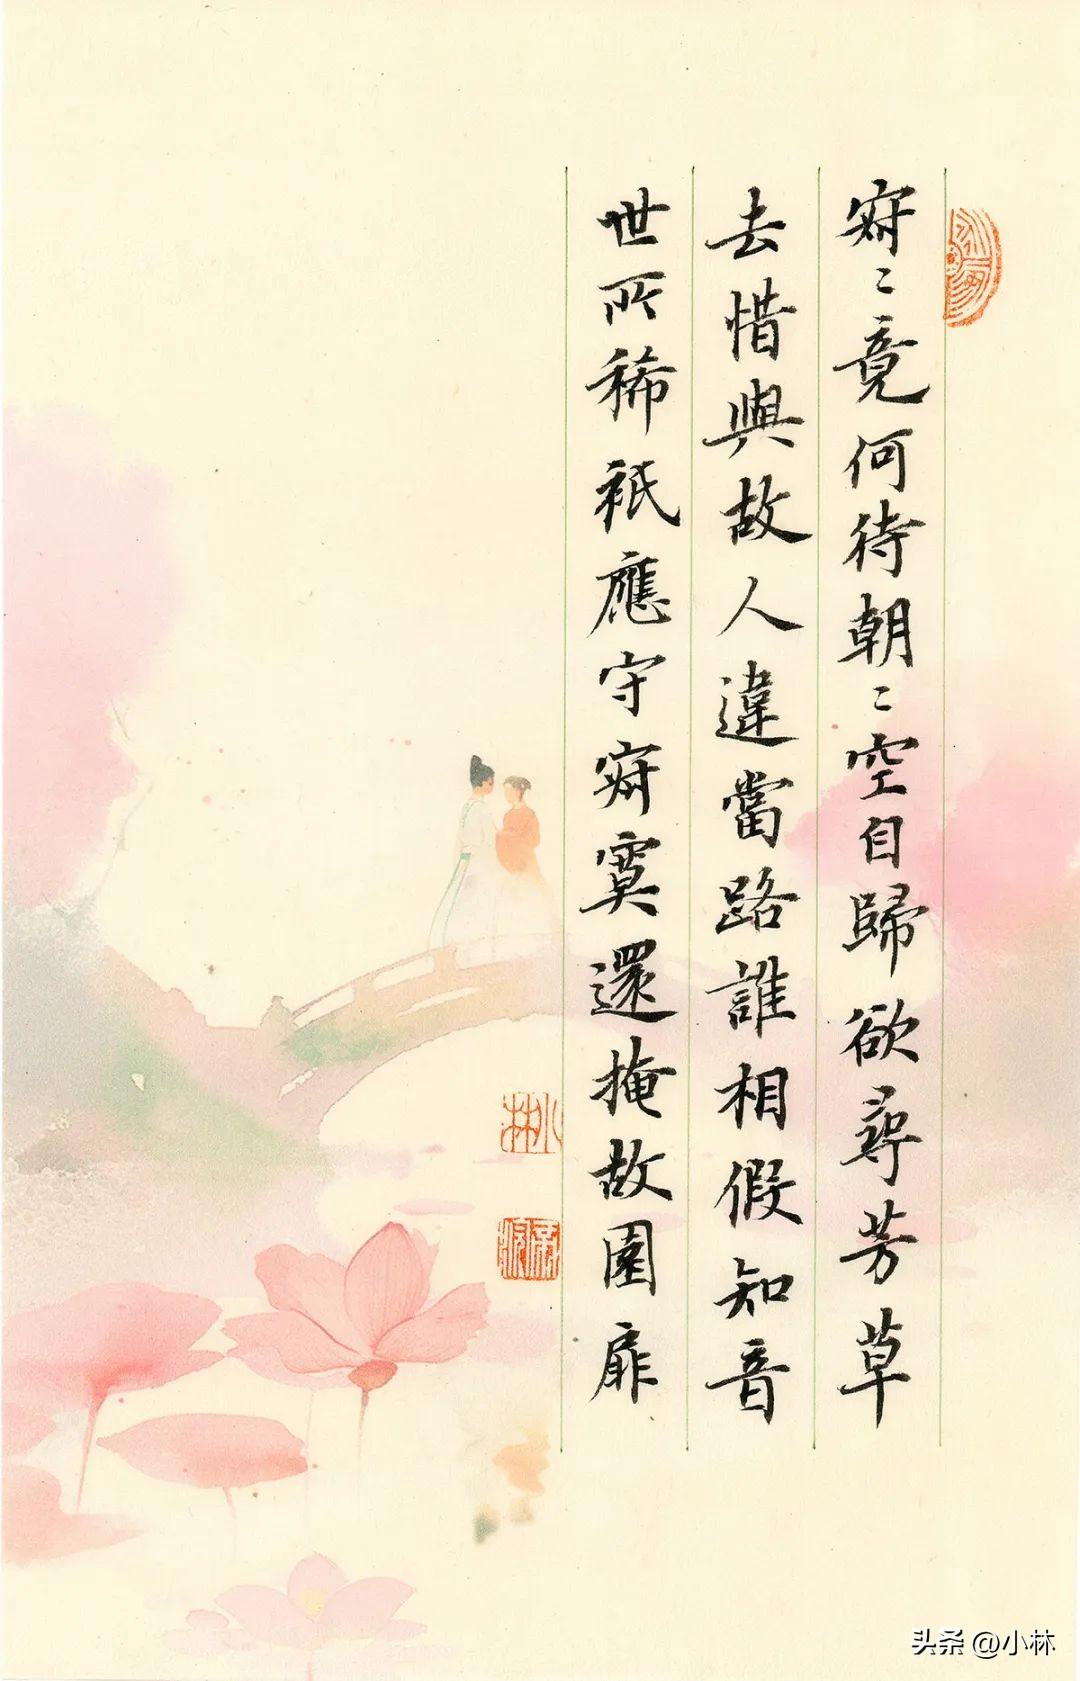 寂〻竟何待朝〻空自歸欲尋芳草
去惜與故人違當路誰相假知音
世所稀祇應守寂寞還掩故園扉
小林
头条 @小林